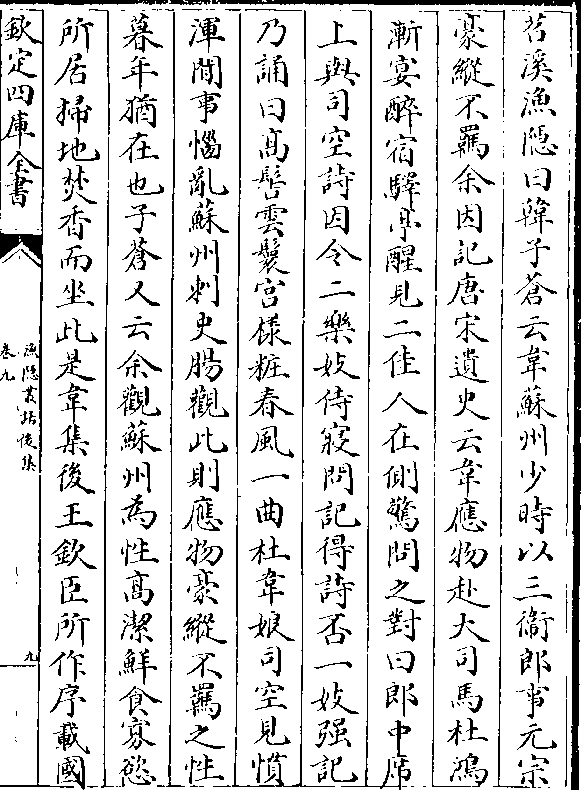 苕溪漁隱曰韓子蒼云韋蘇州少時以三衞郎事元宗
豪縱不羈余因記唐宋遺史云韋應物赴大司馬杜鴻
漸宴醉宿驛亭醒見二佳人在側驚問之對曰郎中席
上與司空詩因令二樂妓侍寢問記得詩否一妓强記
乃誦曰髙髻雲鬟宫様粧春風一曲杜韋娘司空見慣
渾閒事惱亂蘇州刺史腸觀此則應物豪縱不羈之性
暮年猶在也子蒼又云余觀蘇州為性髙潔鮮食寡慾
所居掃地焚香而坐此是韋集後王欽臣所作序載國
欽定四庫全書
漁隱叢話後集
卷九
九